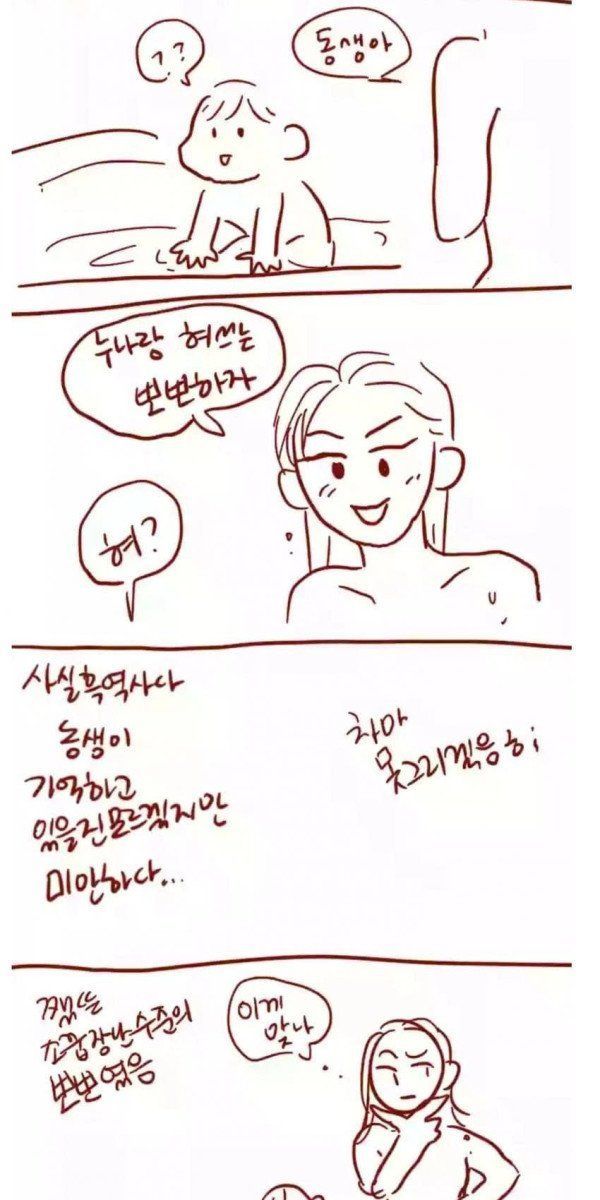 ??
동생아
누나랑 혀쓰는
뽀뽀하자
혀?
사실흑역사다
동생이
기억하고
있을진모르겠지만
미안하다...
차마
못그리겠음ㅎ;
소꿉장난수준의
뽀뽀였음
이게
맞나